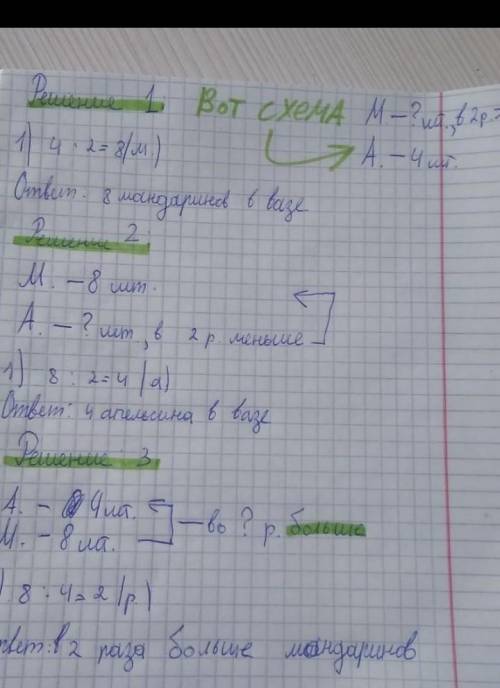 Решение 1 Вот схема М – ? шт., в 2 р.
1) 4 · 2 = 8 (м.) А. – 4 шт.
Ответ: 8 мандаринов в вазе
Решение 2
М. – 8 шт.
А. – ? шт, в 2 р. меньше
1) 8 : 2 = 4 (а)
Ответ: 4 апельсина в вазе
Решение 3
А. – 4 шт.
М. – 8 шт. – во ? р. больше
) 8 : 4 = 2 (р.)
твет: в 2 раза больше мандаринов